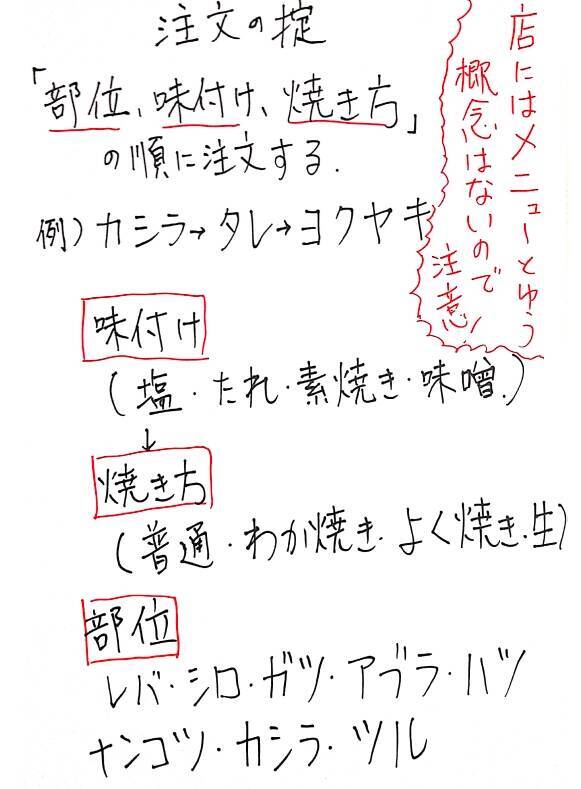 注文の掟
「部位、味付け、焼き方」
の順に注文する.
例)カシラ→タレ→ヨクヤキ
店にはメニューとゆう
概念はないので
注意!
味付け
(塩・たれ・素焼き・味噌.)
↓
焼き方
(普通・わか焼き・よく焼き・生)
部位
レバ・シロ・ガツ・アブラ・ハツ
ナンコツ・カシラ・ツル